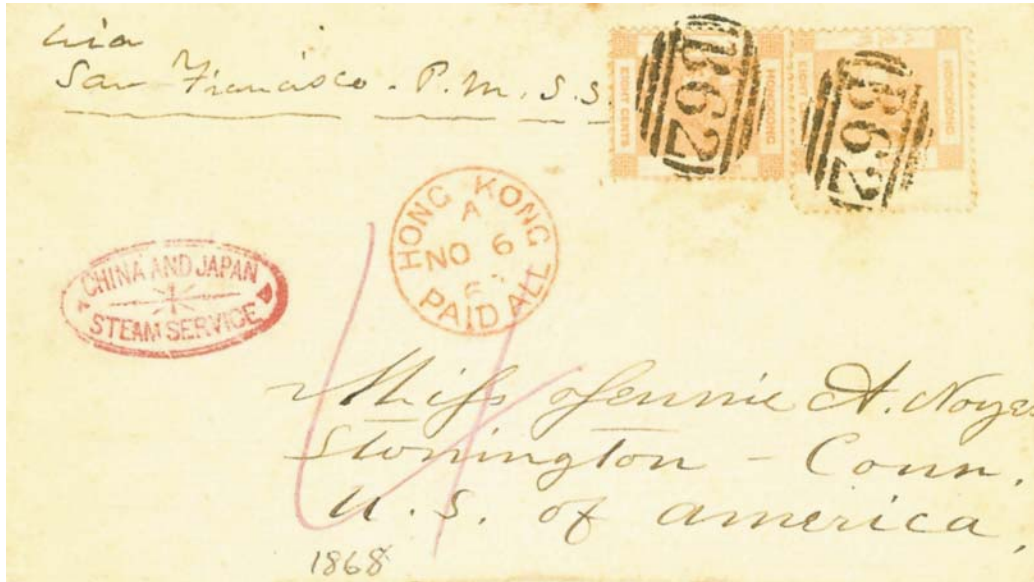 via
San Francisco. P.M.S.S.
EIGHT CENTS
HONGKONG
B62
EIGHT CENTS
HONGKONG
B62
HONG KONG
A
NO 6
PAID ALL
CHINA AND JAPAN
STEAM SERVICE
4
Miss Jennie A. Noyes
Stonington - Conn.
U.S. of america,
1868